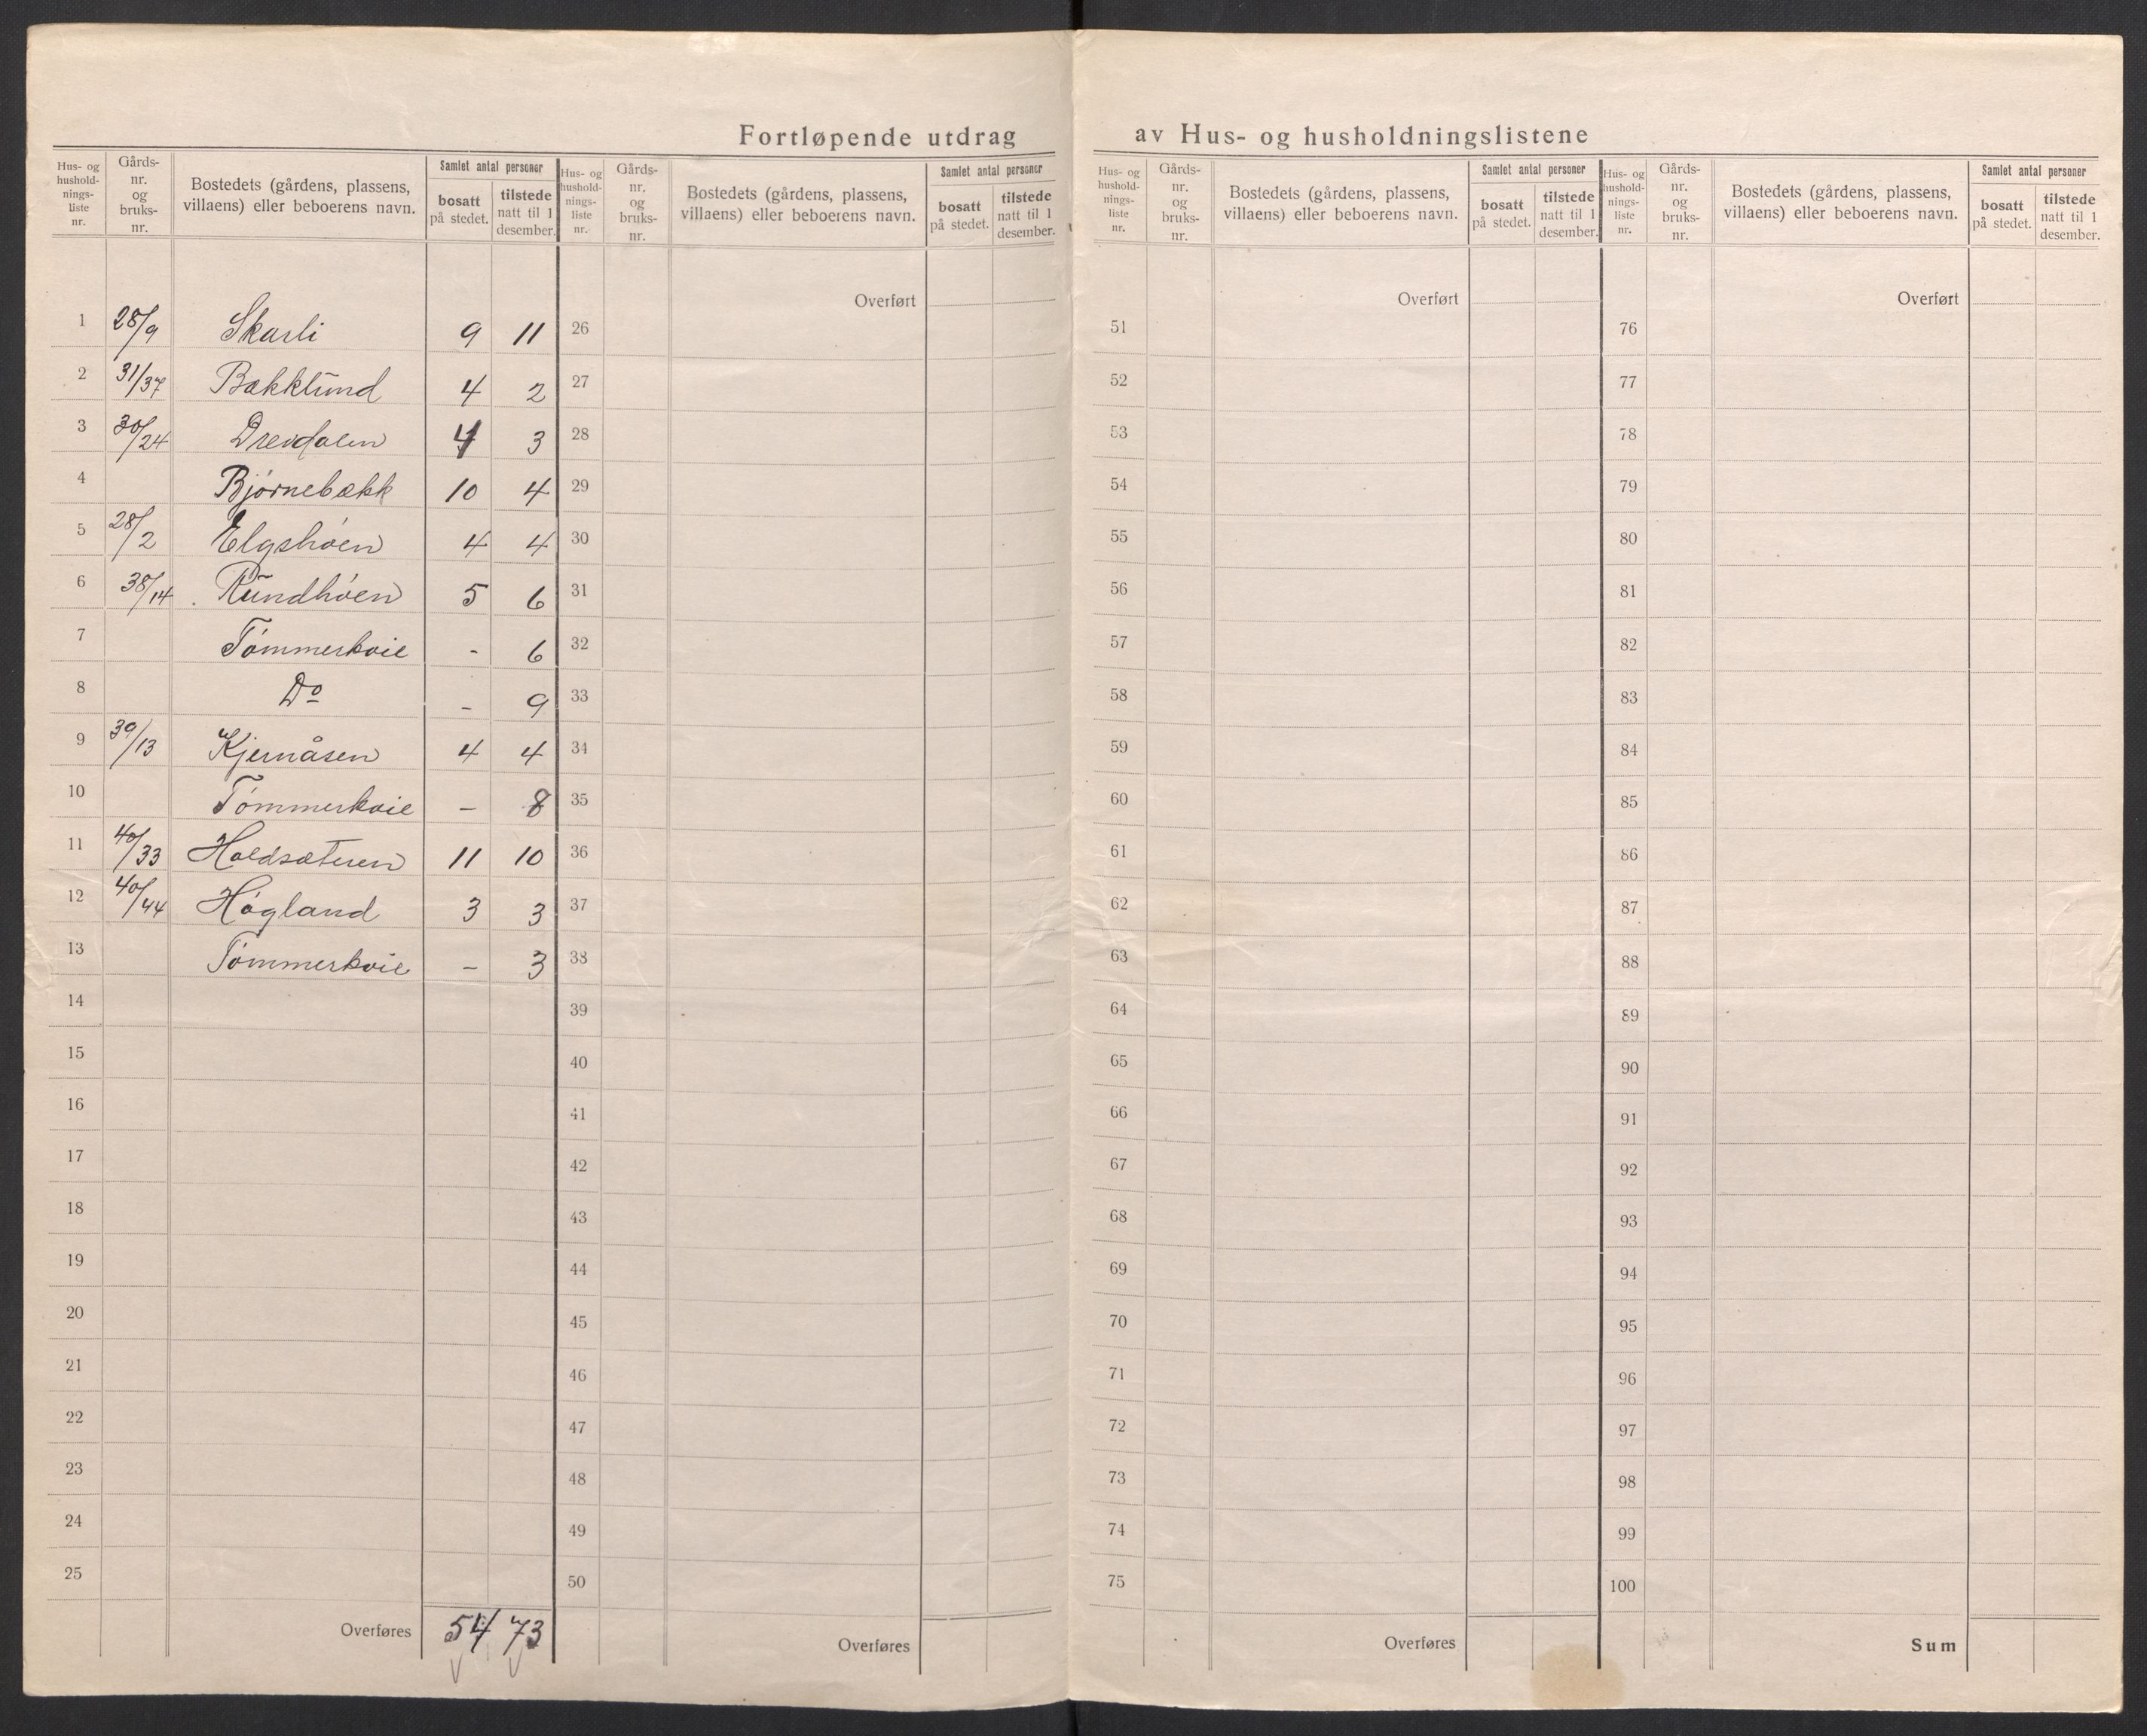 Fortløpende utdrag av Hus- og husholdningslistene
Hus- og husholdnings-liste nr. Gårds-nr. og bruks-nr. Bostedets (gårdens, plassens, villaens) eller beboerens navn. Samlet antal personer bosatt på stedet. tilstede natt til 1 desember.
1 28/9 Skarli 9 11
2 31/37 Bækklund 4 2
3 30/24 Drevdalen 4 3
4 Bjørnebækk 10 4
5 28/2 Elgshøen 4 4
6 38/14 Rundhøen 5 6
7 Tømmerkoie - 6
8 Do - 9
9 39/13 Kjernåsen 4 4
10 Tømmerkoie - 8
11 40/33 Holdsæteren 11 10
12 40/44 Høgland 3 3
13 Tømmerkoie - 3
14
15
16
17
18
19
20
21
22
23
24
25
Overføres 54 73
Hus- og hushold-nings-liste nr. Gårds-nr. og bruks-nr. Bostedets (gårdens, plassens, villaens) eller beboerens navn. Samlet antal personer bosatt på stedet. tilstede natt til 1 desember.
Overført
26
27
28
29
30
31
32
33
34
35
36
37
38
39
40
41
42
43
44
45
46
47
48
49
50
Overføres
Hus- og hushold-nings-liste nr. Gårds-nr. og bruks-nr. Bostedets (gårdens, plassens, villaens) eller beboerens navn. Samlet antal personer bosatt på stedet. tilstede natt til 1 desember.
Overført
51
52
53
54
55
56
57
58
59
60
61
62
63
64
65
66
67
68
69
70
71
72
73
74
75
Overføres
Hus- og hushold-nings-liste nr. Gårds-nr. og bruks-nr. Bostedets (gårdens, plassens, villaens) eller beboerens navn. Samlet antal personer bosatt på stedet. tilstede natt til 1 desember.
Overført
76
77
78
79
80
81
82
83
84
85
86
87
88
89
90
91
92
93
94
95
96
97
98
99
100
Sum